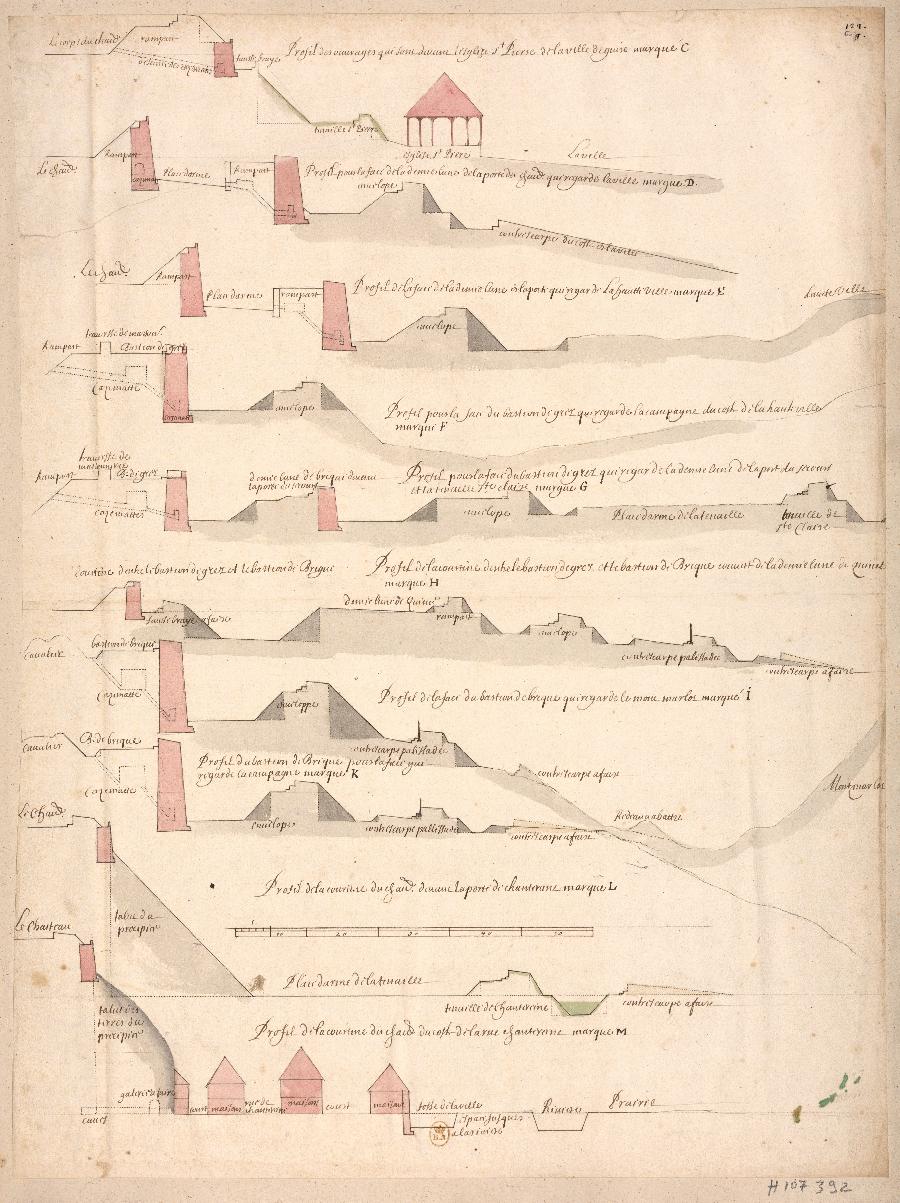 rampart
fausse braye
Profil des ouvrages qui sont devant l'eglise St Pierre de la ville de guise marque C
tenaille St Pierre
eglise St Pierre
La ville
Le chaau
Rampart
Plan darme
Rampart
Profil pour la face de la demie lune de la porte du chaau qui regarde la ville marque D.
envelope
contrescarpe du costé de la ville
Le chaau
Rampart
Plan darme
rampart
Profil de la face de la demie lune de la porte qui regarde La haute ville marque E
haute ville
envelope
Rampart
Bastion de grez
Cazematte
envelope
Profil pour la face du bastion de grez qui regarde la campagne du costé de la haute ville
marque F
Rampart
B. de grez
cazemattes
demie lune de brique devant
la porte du secours
Profil pour la face du bastion de grez qui regarde la demie lune de la porte du secours
et la tenaille Ste claire marque G
envelope
Place darme de la tenaille
tenaille de
Ste Claire
Courtine dentre le bastion de grez et le bastion de Brique
Profil de la courtine dentre le bastion de grez et le bastion de Brique couvert de la demie lune de
marque H
fausse braye a faire
rampart
envelope
contrescarpe palissadée
contrescarpe a faire
Cavalier
bastion de brique
Cazematte
envelope
Profil de la face du bastion de brique qui regarde le mont marlot marque I
contrescarpe palissadée
contrescarpe a faire
Cavalier
B. de brique
Cazematte
Profil du bastion de Brique pour la face qui
regarde la campagne marque K
envelope
contrescarpe palissadée
contrescarpe a faire
Redan a abattre
Mont marlot
Le Chaau
Profil de la courtine du chaau devant la porte de chanteraine marque L
talus du
precipice
10 20 30 40 50
Le Chasteau
Place darme de la tenaille
tenaille de Chanteraine
contrescarpe a faire
talus des
terres du
precipice
Profil de la courtine du chaau du costé de la rue chanteraine marque M
galerie a faire
court
court
maison
rue de
chanteraine
maison
court
maison
fosse de la ville
Riviere
Prairie
jusques
a la riviere
H 107 392